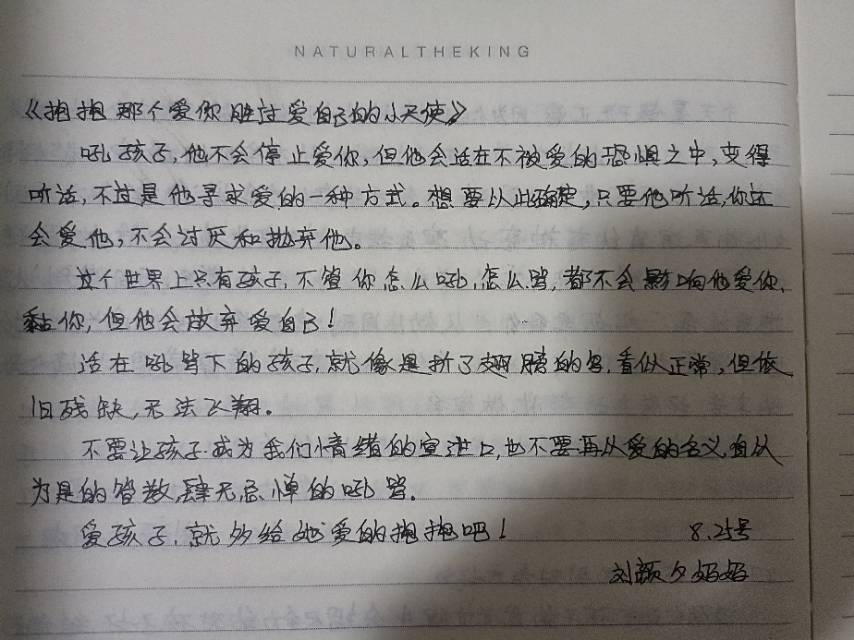 NATURALTHEKING
《抱抱那个爱你胜过爱自己的小天使》
吼孩子,他不会停止爱你,但他会活在不被爱的恐惧之中,变得
听话,不过是他寻求爱的一种方式。想要以此确定,只要他听话,你还
会爱他,不会讨厌和抛弃他。
这个世界上只有孩子,不管你怎么吼,怎么骂,都不会影响他爱你,
黏你,但他会放弃爱自己!
活在吼骂下的孩子,就像是折了翅膀的鸟,看似正常,但依
旧残缺,无法飞翔。
不要让孩子成为我们情绪的宣泄口,也不要再以爱的名义,自以
为是的管教,肆无忌惮的吼骂。
爱孩子,就多给她爱的抱抱吧!
8.25号
刘颜夕妈妈